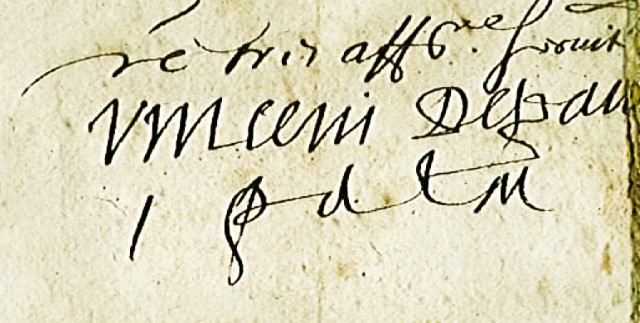 vre tres affne. servit
Vincent Depaul
i p d l M